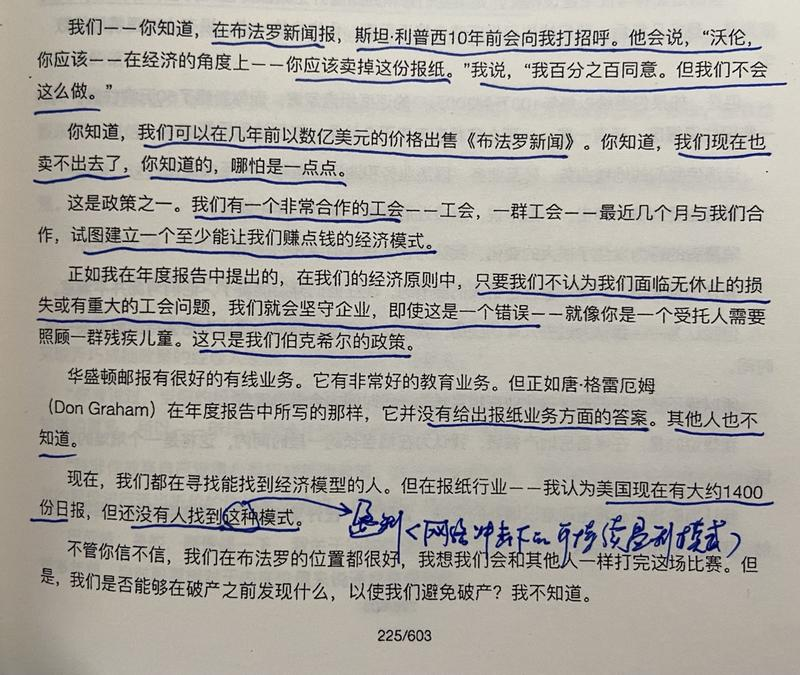 我们——你知道，在布法罗新闻报，斯坦·利普西10年前会向我打招呼。他会说，“沃伦，
你应该——在经济的角度上——你应该卖掉这份报纸。”我说，“我百分之百同意。但我们不会
这么做。”
你知道，我们可以在几年前以数亿美元的价格出售《布法罗新闻》。你知道，我们现在也
卖不出去了，你知道的，哪怕是一点点。
这是政策之一。我们有一个非常合作的工会——工会，一群工会——最近几个月与我们合
作，试图建立一个至少能让我们赚点钱的经济模式。
正如我在年度报告中提出的，在我们的经济原则中，只要我们不认为我们面临无休止的损
失或有重大的工会问题，我们就会坚守企业，即使这是一个错误——就像你是一个受托人需要
照顾一群残疾儿童。这只是我们伯克希尔的政策。
华盛顿邮报有很好的有线业务。它有非常好的教育业务。但正如唐·格雷厄姆
（Don Graham）在年度报告中所写的那样，它并没有给出报纸业务方面的答案。其他人也不
知道。
现在，我们都在寻找能找到经济模型的人。但在报纸行业——我认为美国现在有大约1400
份日报，但还没有人找到这种模式。
盈利（网络冲击下的可持续盈利模式）
不管你信不信，我们在布法罗的位置都很好，我想我们会和其他人一样打完这场比赛。但
是，我们是否能够在破产之前发现什么，以使我们避免破产？我不知道。
225/603